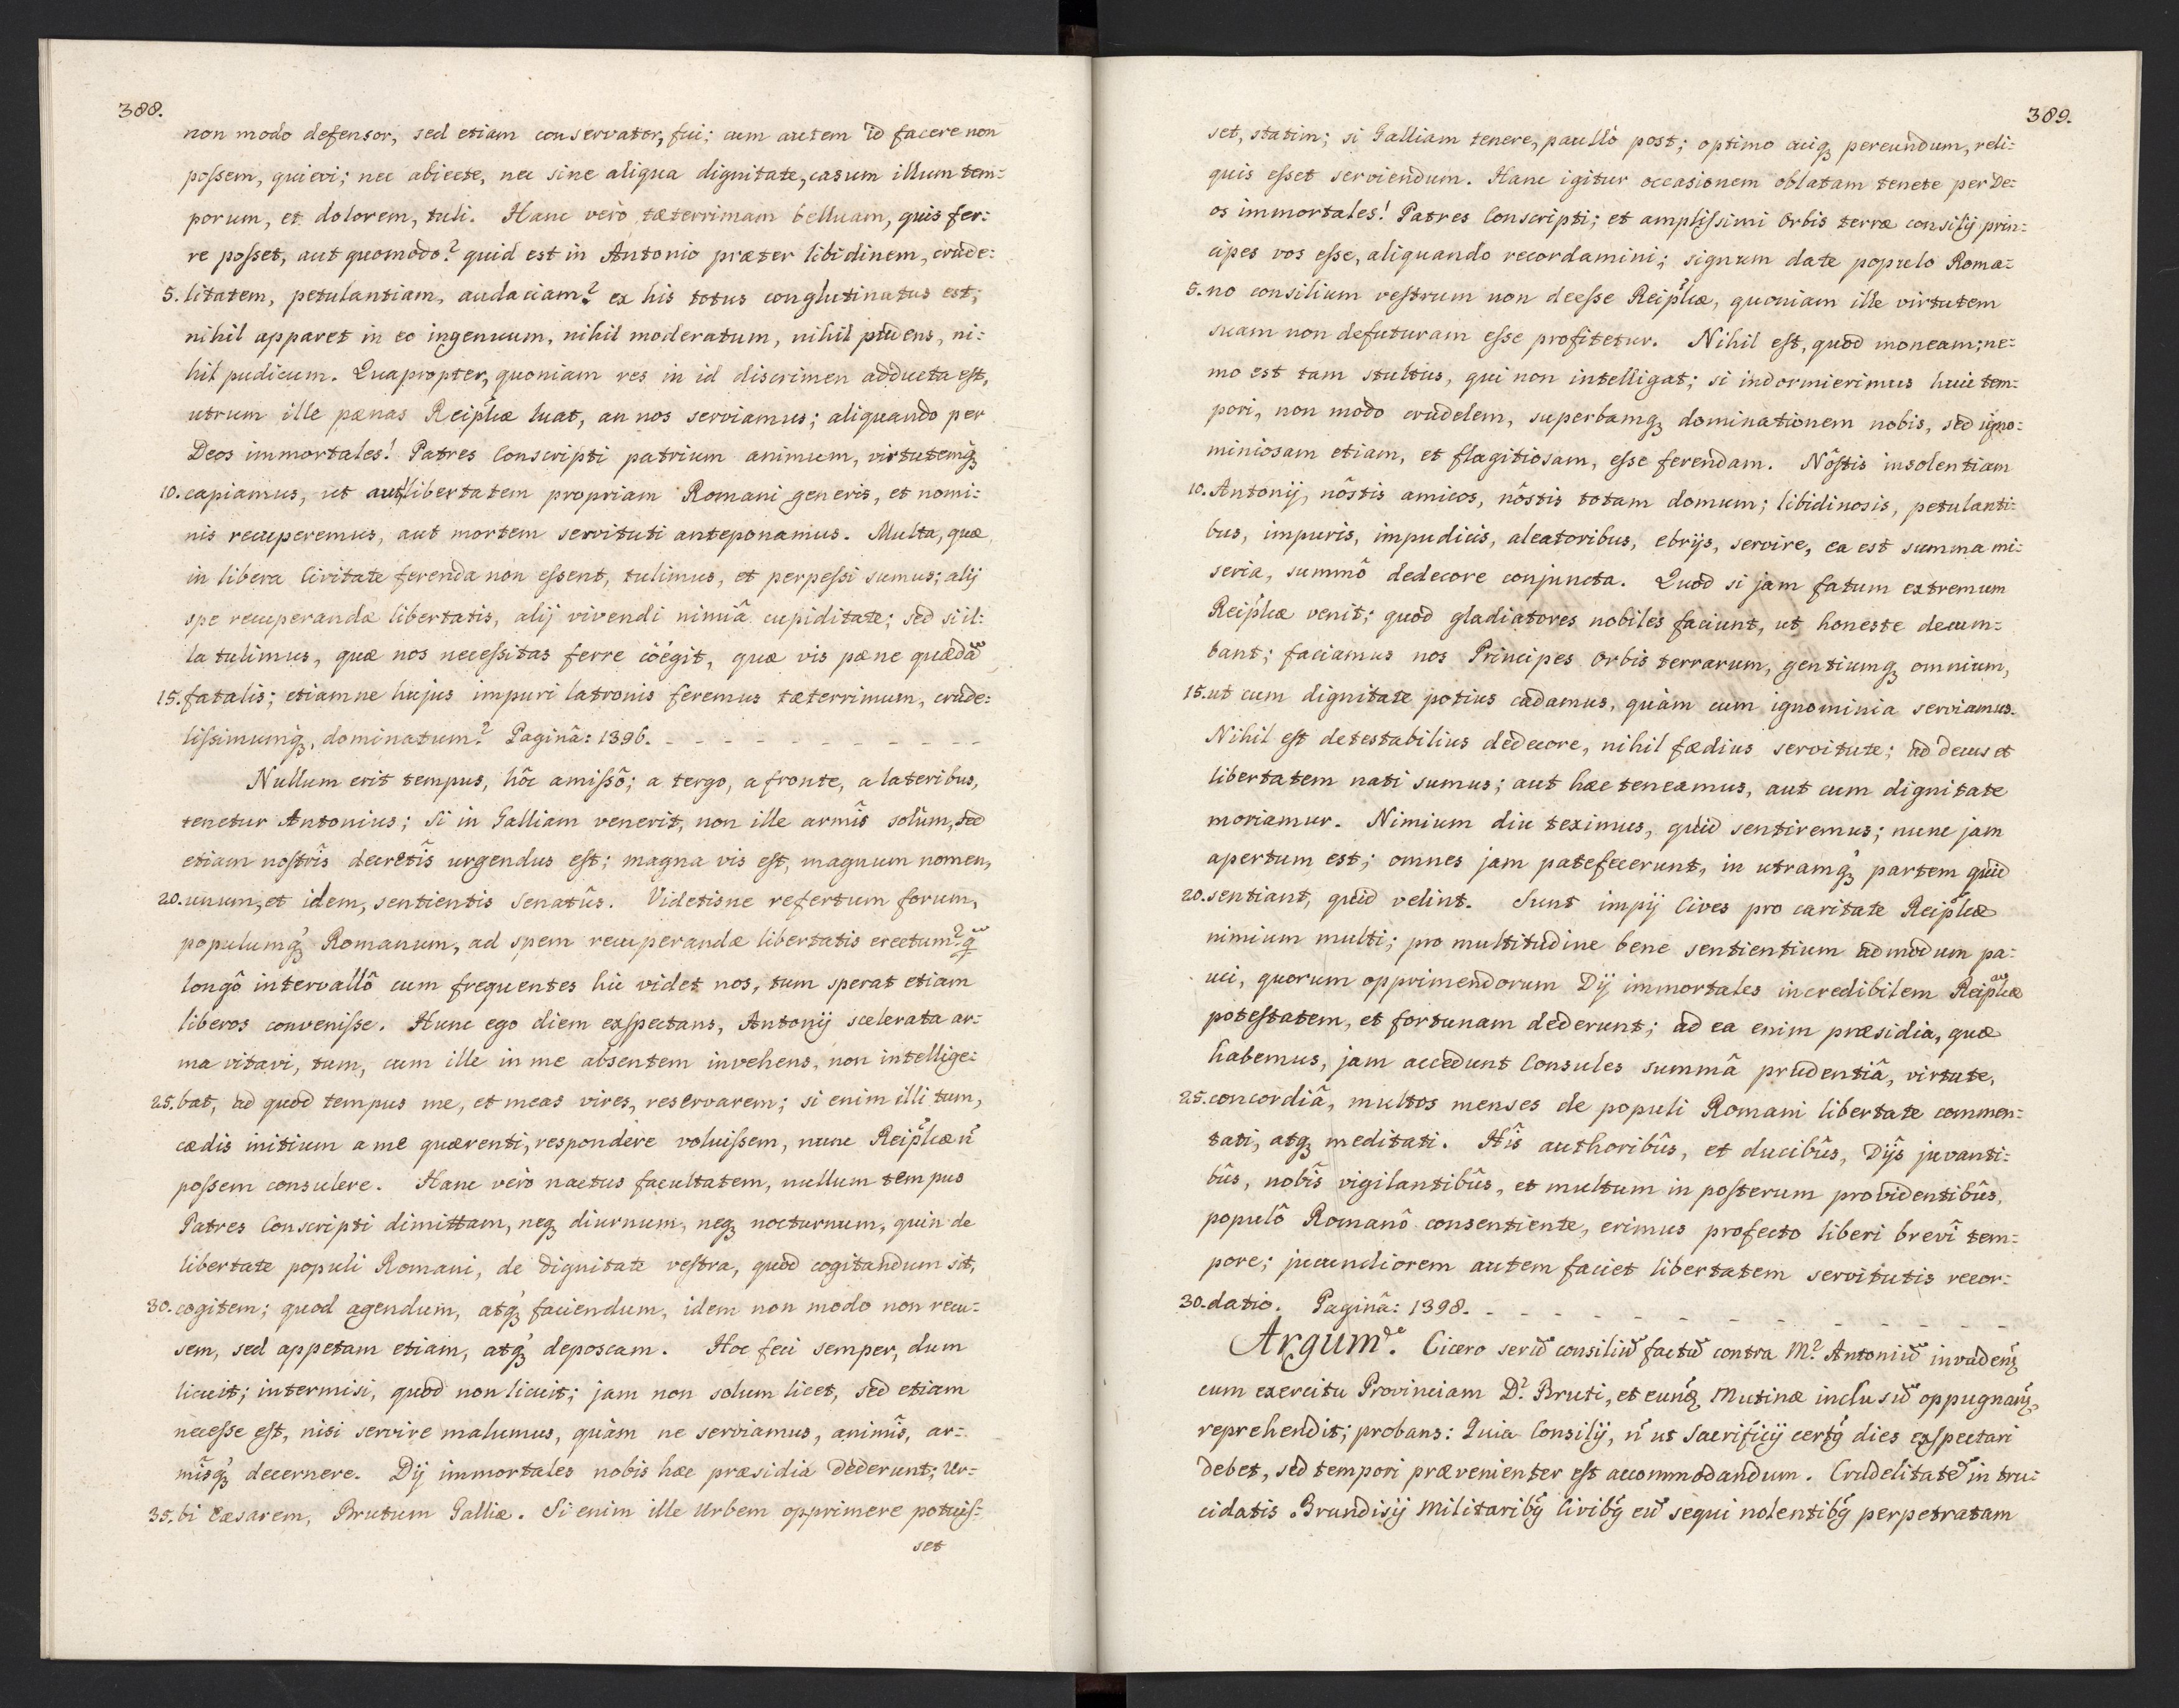 388.
non modo defensor, sed etiam conservator, fui; cum autem id facere non
poſsem, quievi; nec abiecte, nec sine aliqua dignitate, casum illum tem=
porum, et dolorem, tuli. Hanc verò tæterrimam belluam, quis fer=
re poſset, aut quomodo? quid est in Antonio præter libidinem, crude=
5. litatem, petulantiam, audaciam? ex his totus conglutinatus est;
nihil apparet in eo ingenuum, nihil moderatum, nihil pudens, ni=
hil pudicum. Quapropter, quoniam res in id discrimen adducta eſt,
utrum ille pænas Reipłicæ luat, an nos serviamus; aliquando per
Deos immortales! Patres Conscripti patrium animum, virtutemq́ꝫ
10. capiamus, ut aut libertatem propriam Romani generis, et nomi=
nis recuperemus, aut mortem servituti anteponamus. Multa, quæ
in libera Civitate ferenda non eſsent, tulimus, et perpeſsi sumus; alij
spe recuperandæ libertatis, alij vivendi nimiâ cupiditate; sed si il=
la tulimus, quæ nos neceſsitas ferre cöégit, quæ vis pæne quædā
15. fatalis; etiamne hujus impuri latronis feremus tæterrimum, crude=
liſsimumq́ꝫ, dominatum? Paginâ: 1396. - - - - - - - - - - -
Nullum erit tempus, hôc amiſsô; a tergo, a fronte, a lateribus,
tenetur Antonius; Si in Galliam venerit, non ille armîs solùm, sed
etiam noſtrîs decretîs urgendus eſt; magna vis eſt, magnum nomen,
20. unum, et idem, sentientis Senatûs. Videtisne refertum forum,
populumq́ꝫ Romanum, ad spem recuperandæ libertatis erectum? q̃
longô intervallô cum frequentes hic videt nos, tum sperat etiam
liberos conveniſse. Hunc ego diem exſpectans, Antonij scelerata ar=
ma vitavi, tum, cum ille in me absentem invehens, non intellige=
25. bat, ad quod tempus me, et meas vires, reservarem; si enim illi tum,
cædis initium a me quærenti, respondere voluiſsem, nunc Reipłicæ ñ
poſsem consulere. Hanc verò nactus facultatem, nullum tempus
Patres Conscripti dimittam, neqꝫ diurnum, neqꝫ nocturnum, quin de
libertate populi Romani, de dignitate veſtra, quod cogitandum sit,
30. cogitem; quod agendum, atq́ꝫ faciendum, idem non modo non recu=
sem, sed appetam etiam, atq́ꝫ deposcam. Hoc feci semper, dum
licuit; intermisi, quod non licuit; jam non solum licet, sed etiam
neceſse eſt, nisi servire malumus, quàm ne serviamus, animîs, ar=
mîsq́ꝫ decernere. Dij immortales nobis hæc præsidia dederunt; Ur=
35. bi Cæsarem, Brutum Galliæ. Si enim ille Urbem opprimere potuiſ=
set
389.
set, statim; si Galliam tenere, paullò post; optimo cuiqꝫ pereundum, reli=
quis eſset serviendum. Hanc igitur occasionem oblatam tenete per De=
os immortales! Patres Conscripti; et ampliſsimi Orbis terræ consilij prin=
cipes vos eſse, aliquando recordamini; signum date populo Roma=
5. no consilium veſtrum non deeſse Reipłicæ, quoniam ille virtutem
suam non defuturam eſse profitetur. Nihil eſt, quòd moneam; ne=
mo est tam stultus, qui non intelligat; si indormierimus huic tem=
pori, non modo crudelem, superbamqꝫ dominationem nobis, sed igno=
miniosam etiam, et flagitiosam, eſse ferendam. Nôſtis insolentiam
10. Antonij, nôstis amicos, nôstis totam domum; libidinosis, petulanti=
bus, impuris, impudicis, aleatoribus, ebrijs, servire, ea est summa mi=
seria, summô dedecore conjuncta. Quod si jam fatum extremum
Reipłicæ venit; quod gladiatores nobiles faciunt, ut honeste decum=
bant; faciamus nos Principes Orbis terrarum, gentiumqꝫ omnium,
15. ut cum dignitate potius cadamus, quàm cum ignominia serviamus.
Nihil eſt detestabilius dedecore, nihil fædius servitute; ad decus et
libertatem nati sumus; aut hæc teneamus, aut cum dignitate
moriamur. Nimium diu teximus, quid sentiremus; nunc jam
apertum est; omnes jam patefecerunt, in utramq́ꝫ partem quid
20. sentiant, quid velint. Sunt impij Cives pro caritate Reipłicæ
nimium multi; pro multitudine bene sentientium admodum pa=
uci, quorum opprimendorum Dij immortales incredibilem Reipłicæ
poteſtatem, et fortunam dederunt; ad ea enim præsidia, quæ
habemus, jam accedunt Consules summâ prudentiâ, virtute,
25. concordiâ, multos menses de populi Romani libertate commen=
tati, atqꝫ meditati. Hîs authoribûs, et ducibûs, Dijs juvanti=
bûs, nobîs vigilantibûs, et multum in poſterum providentibûs,
populô Romanô consentiente, erimus profecto liberi brevî tem=
pore; jucundiorem autem faciet libertatem servitutis recor=
30. datio. Paginâ: 1398. - - - - - - - - - - -
Argumde. Cicero seriū consiliū factū contra M? Antoniū invadenꝫ
cum exercitu Provinciam D? Bruti, et eunq́ꝫ Mutinæ inclusū oppugnanꝫ,
reprehendit; probans: Quia Consilij, ñ ut Sacrificij certꝰ dies exſpectari
debet, sed tempori prævenienter eſt accommodandum. Crudelitatē in tru=
cidatis Brundisij Militaribꝰ Civibꝰ eū sequi nolentibꝰ perpetratam